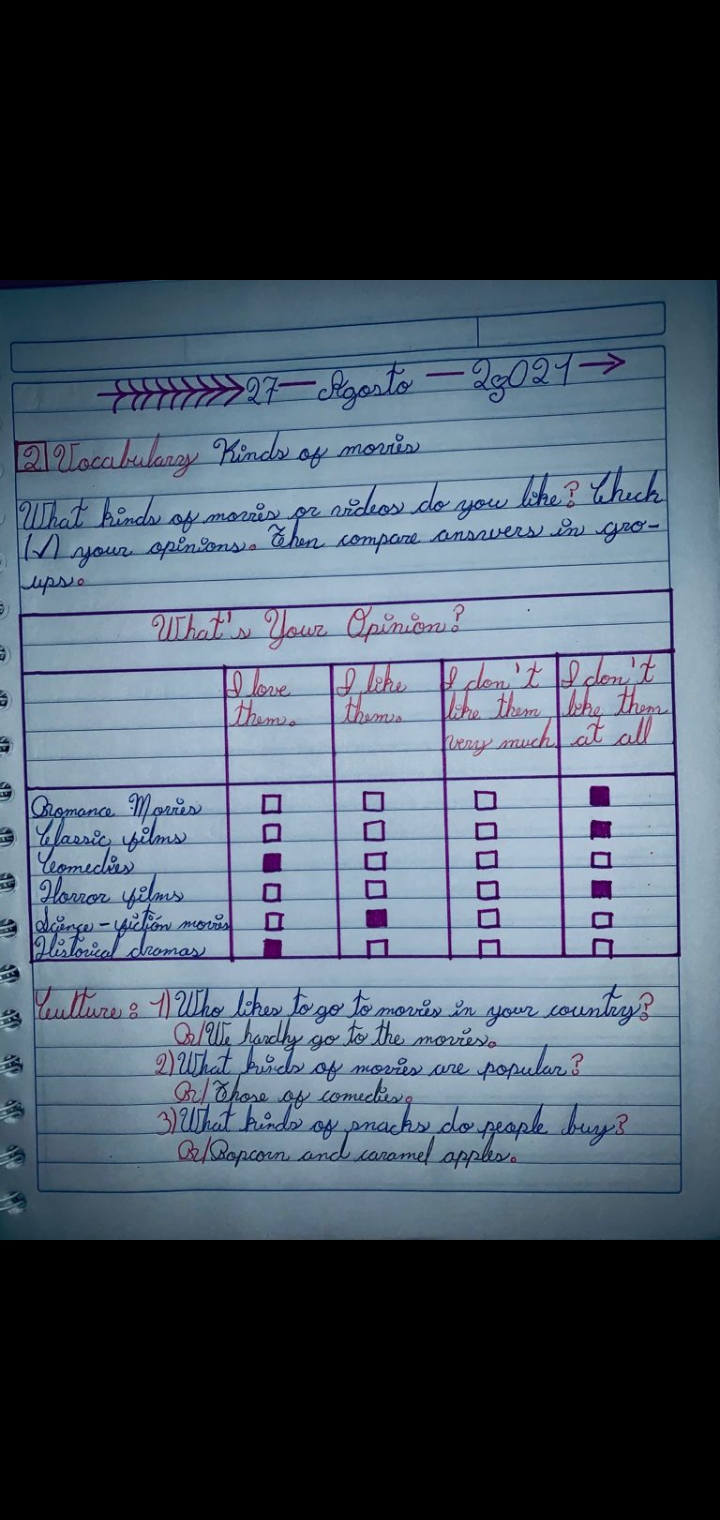 27 — Agosto — 2021
2 Vocabulary Kinds of movies
What kinds of movies or videos do you like? Check
(✓) your opinions. Then compare answers in gro-
ups.
What's Your Opinion?
I love them.
I like them.
I don't like them very much.
I don't like them at all
Romance Movies
Classic films
Comedies
Horror films
Science-fiction movies
Historical dramas
Culture: 1) Who likes to go to movies in your country?
R/ We hardly go to the movies.
2) What kinds of movies are popular?
R/ Those of comedies.
3) What kinds of snacks do people buy?
R/ Popcorn and caramel apples.